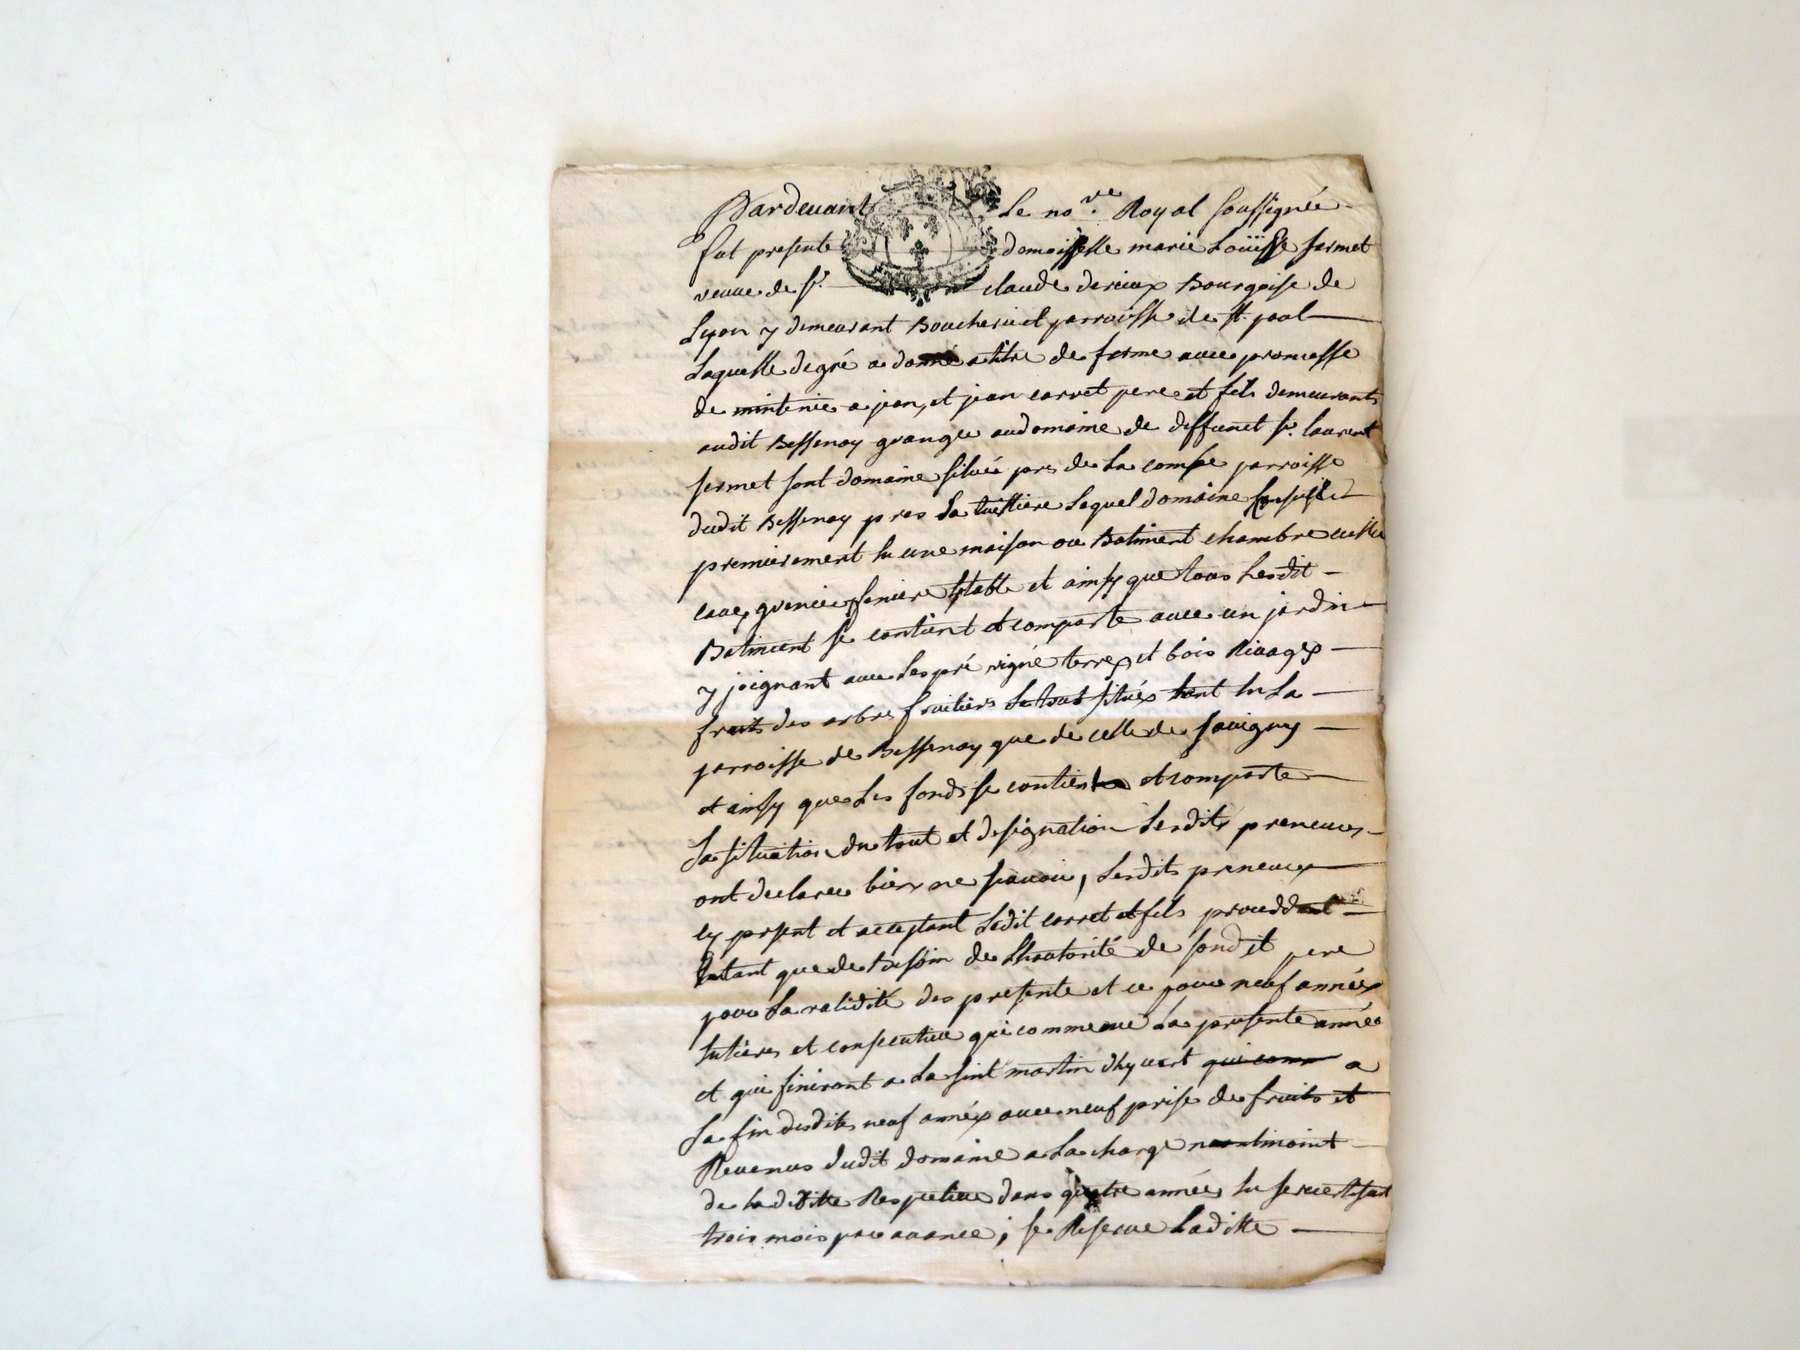 Pardevant Le no.re Royal soussignée
fut presente domoiselle marie Loüise fermet
veuve de sr. claude derieux Bourgoise de
Lyon y demeurant Boucherie et parroisse de st. paol
Laquelle degré a donné a titre de ferme avec promesse
de mintenir a jean, et jean carret pere et fils demeurants
audit Bessenay granger audomaine de deffunct sr. laurent
fermet sont domaine situé pres de La combe parroisse
dudit Bessenay pres La tuilliere Lequel domaine Consiste
premierement en une maison ou Batiment chambre
cave, grenier feniere Etable et ainsy que tous Lesdit
Batiment se contient et comporte avec un jardin
y joignant avec Les pré vigne terres et bois Rivages
fruits des arbres fruitiers Le tout situés tant en La
parroisse de Bessenay que de celle de savigny
et ainsy que Les fonds se contient et comporte
La situation du tout et designation Lesdits preneurs
ont declaree bien ne scavoir, Lesdits preneurs
cy present et acceptant Ledit carret et fils proceddant
Entant que de besoin de Lhautorité de sondit pere
pour La validité des presente et ce pour neuf années
Entieres et consecutive qui commence La presente année
et qui finiront a La sint martin d'hyvert a
La fin desdites neuf années avec neuf prise de fruits et
Revenus dudit domaine a La charge neantmoint
de Laditte Respective dans quatre années En se
trois mois par avance; se Reserve Laditte